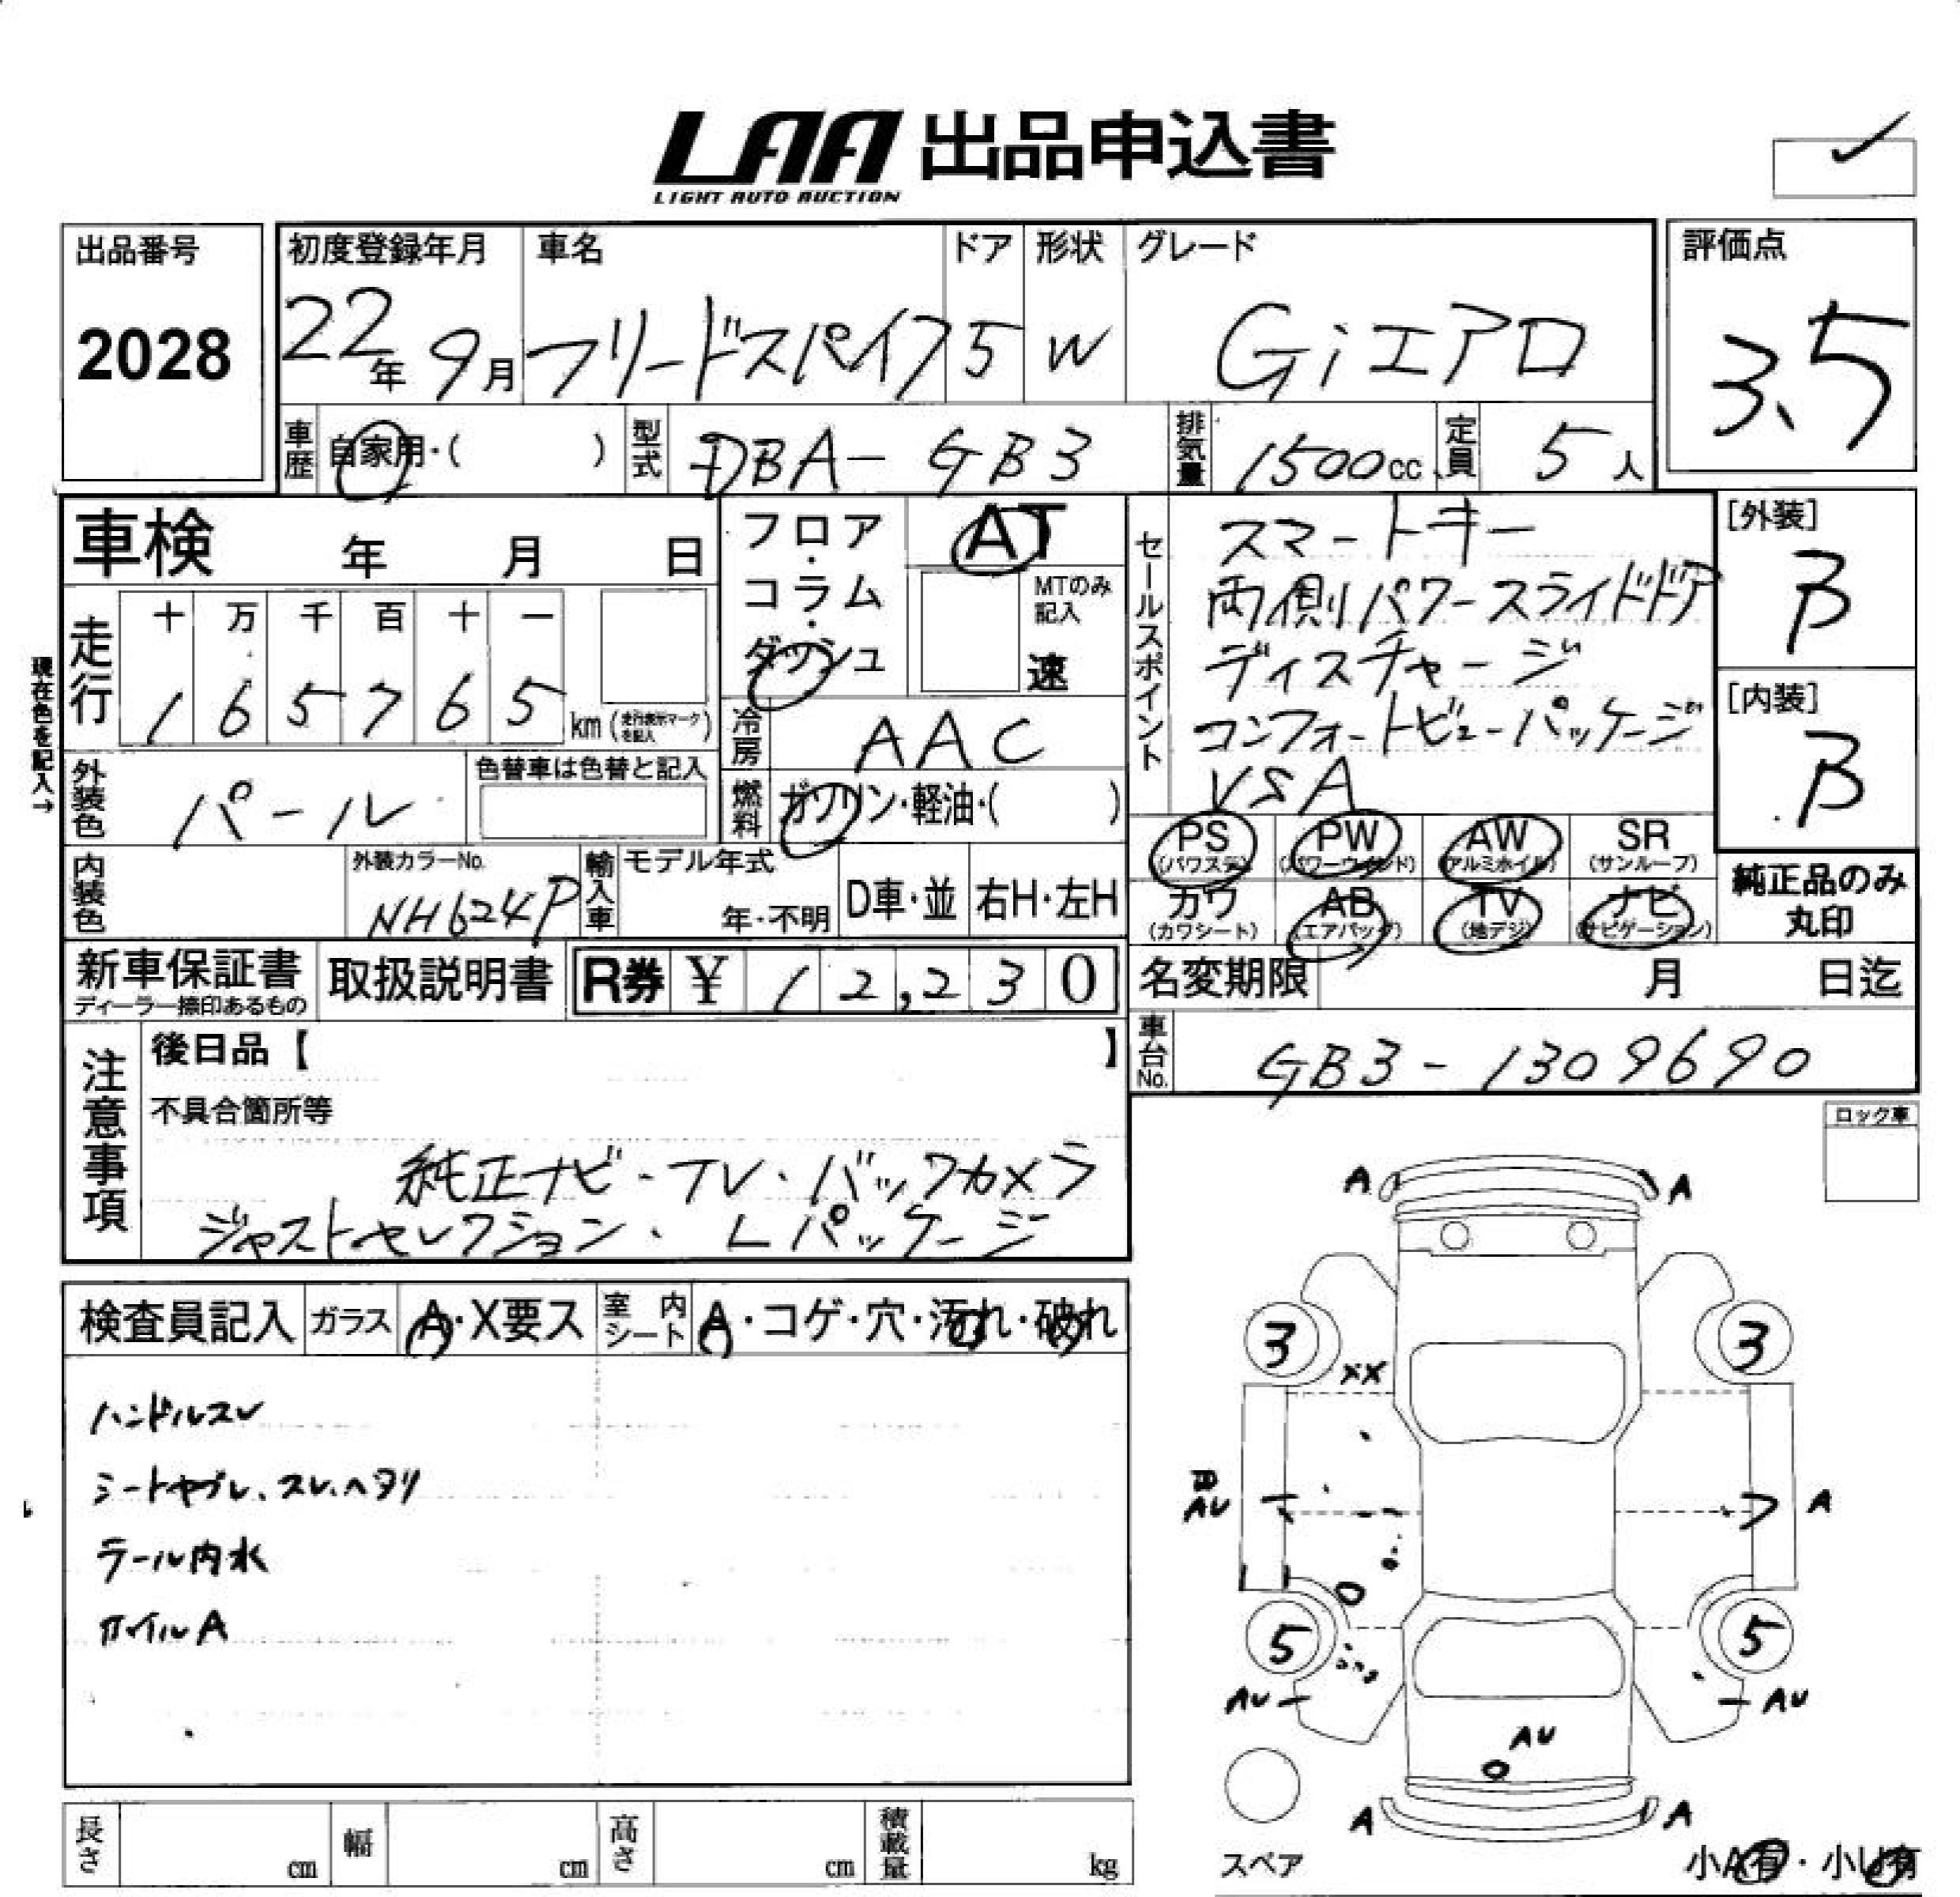 LAA 出品申込書
LIGHT AUTO AUCTION
出品番号
2028
初度登録年月
22年 9月
車名
フリードスパイク
ドア
5
形状
W
グレード
Giエアロ
評価点
3.5
車歴 自家用・( )
型式 DBA-GB3
排気量 1500cc
定員 5人
車検 年 月 日
フロア・コラム・ダッシュ
AT
MTのみ記入
速
セールスポイント
スマートキー
両側パワースライドドア
ディスチャージ
コンフォートビューパッケージ
VSA
[外装]
B
[内装]
B
現在色を記入→
走行
十 万 千 百 十 一
1 6 5 7 6 5 km (走行表示マークを記入)
冷房 AAC
外装色 パール
色替車は色替と記入
燃料 ガソリン・軽油・( )
内装色
外装カラーNo.
NH624P
輸入車
モデル年式
年・不明
D車・並
右H・左H
PS (パワステ)
PW (パワーウインド)
AW (アルミホイル)
SR (サンルーフ)
カワ (カワシート)
AB (エアバッグ)
TV (地デジ)
ナビ (ナビゲーション)
純正品のみ
丸印
新車保証書
ディーラー捺印あるもの
取扱説明書
R券 ¥ 12,230
名変期限 月 日迄
車台No. GB3-1309690
注意事項
後日品【 】
不具合箇所等
純正ナビ・TV・バックカメラ
ジャストセレクション・Lパッケージ
ロック車
検査員記入
ガラス A・X要ス
室内シート A・コゲ・穴・汚れ・破れ
ハンドルスレ
シートヤブレ、スレ、ヘタリ
テール内水
ホイルA
A A
3 3
XX
B
AU
A
5 5
AU AU
AU
A A
スペア
小A有・小U有
長さ cm
幅 cm
高さ cm
積載量 kg